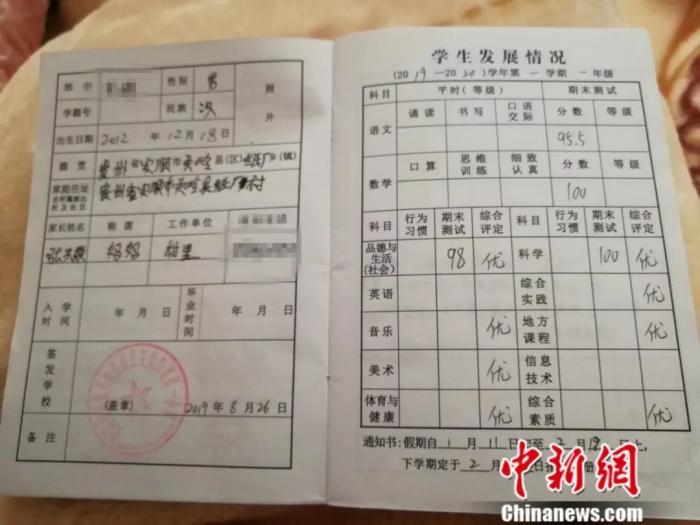 姓名 性别 男 照片
学籍号 民族 汉
出生日期 2012年12月18日
籍贯 贵州省安顺市 县(区) 乡(镇)
家庭住址 贵州省安顺市
家长姓名 称谓 工作单位
入学时间 年 月 日 毕业时间 年 月 日
签发学校
(盖章) 2019年8月26日
备注
学生发展情况
(2019—2020)学年第一学期 一年级
科目 平时(等级) 期末测试
语文 诵读 书写 口语交际 分数 等级
95.5
数学 口算 思维训练 细致认真 分数 等级
100
科目 行为习惯 期末测试 综合评定 科目 行为习惯 期末测试 综合评定
品德与生活(社会) 98 优 科学 100 优
英语 综合实践
音乐 优 地方课程 优
美术 优 信息技术
体育与健康 优 综合素质 优
通知书:假期自1月11日 至2月 日止,
下学期定于2月
中新网
Chinanews.com